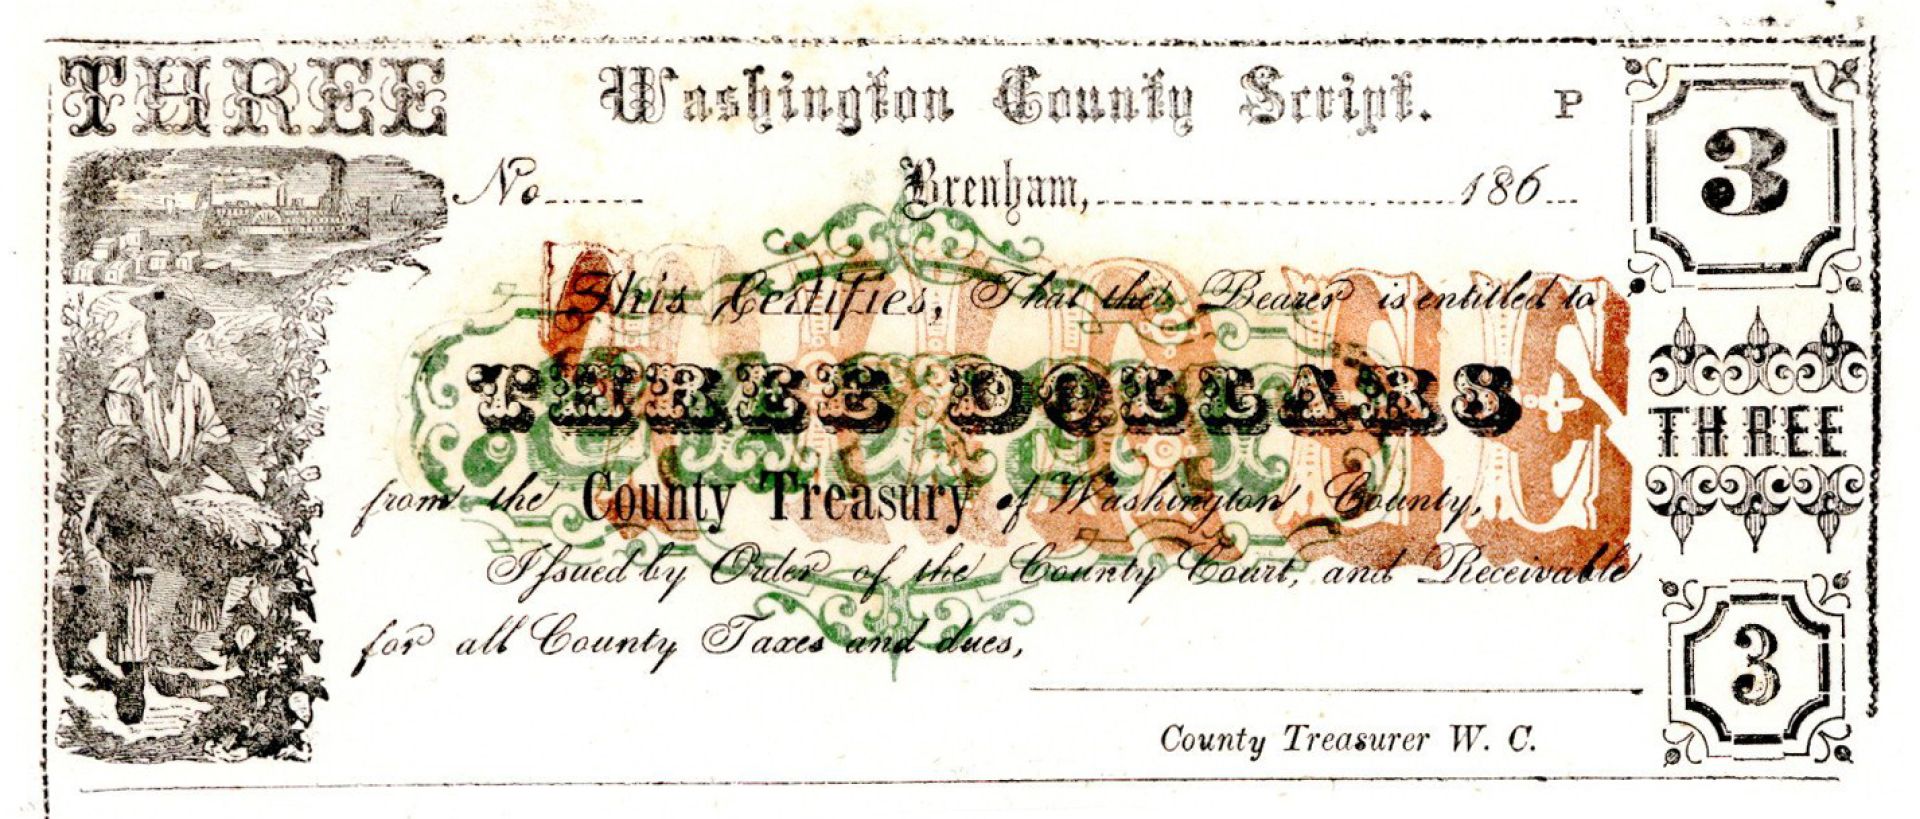 THREE
Washington County Script.
P
3
No
Brenham, 186
This Certifies, That the Bearer is entitled to
THREE
THREE DOLLARS
THREE
from the County Treasury of Washington County,
Issued by Order of the County Court, and Receivable
for all County Taxes and dues,
3
County Treasurer W. C.